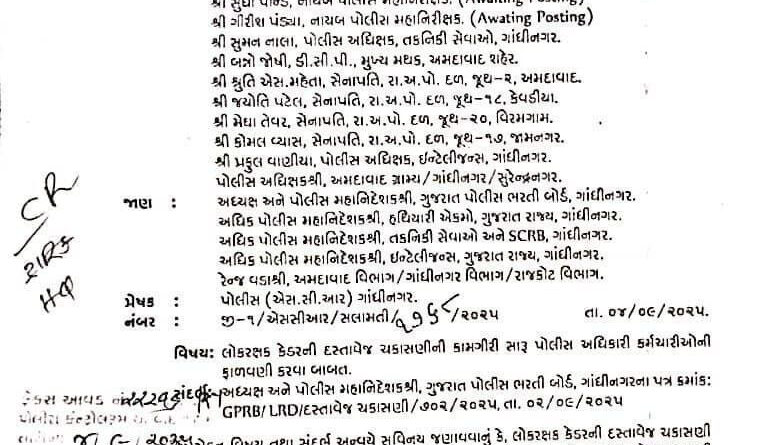 શ્રી ગીરીશ પંડ્યા, નાયબ પોલીસ મહાનિરીક્ષક. (Awating Posting)
શ્રી સુમન નાલા, પોલીસ અધિક્ષક, તકનિકી સેવાઓ, ગાંધીનગર.
શ્રી બન્નો જોષી, ડી.સી.પી., મુખ્ય મથક, અમદાવાદ શહેર.
શ્રી શ્રુતિ એસ.મહેતા, સેનાપતિ, રા.અ.પો. દળ, જૂથ-૨, અમદાવાદ.
શ્રી જયોતિ પટેલ, સેનાપતિ, રા.અ.પો. દળ, જૂથ-૧૮, કેવડીયા.
શ્રી મેઘા તેવર, સેનાપતિ, રા.અ.પો. દળ, જૂથ-૨૦, વિરમગામ.
શ્રી કોમલ વ્યાસ, સેનાપતિ, રા.અ.પો. દળ, જૂથ-૧૭, જામનગર.
શ્રી પ્રફુલ વાણીયા, પોલીસ અધિક્ષક, ઇન્ટેલીજન્સ, ગાંધીનગર.
પોલીસ અધિક્ષકશ્રી, અમદાવાદ ગ્રામ્ય/ગાંધીનગર/સુરેન્દ્રનગર.
જાણ : અધ્યક્ષ અને પોલીસ મહાનિદેશકશ્રી, ગુજરાત પોલીસ ભરતી બોર્ડ, ગાંધીનગર.
અધિક પોલીસ મહાનિદેશકશ્રી, હથિયારી એકમો, ગુજરાત રાજ્ય, ગાંધીનગર.
અધિક પોલીસ મહાનિદેશકશ્રી, તકનિકી સેવાઓ અને SCRB, ગાંધીનગર.
અધિક પોલીસ મહાનિદેશકશ્રી, ઇન્ટેલીજન્સ, ગુજરાત રાજ્ય, ગાંધીનગર.
રેન્જ વડાશ્રી, અમદાવાદ વિભાગ/ગાંધીનગર વિભાગ/રાજકોટ વિભાગ.
CR
પ્રેષક : પોલીસ (એસ.સી.આર) ગાંધીનગર.
નંબર : જી-૧/એસસીઆર/સલામતી/ /૨૦૨૫ તા. ૦૪/૦૯/૨૦૨૫.
વિષય: લોકરક્ષક કેડરની દસ્તાવેજ ચકાસણીની કામગીરી સારૂ પોલીસ અધિકારી કર્મચારીઓની
ફાળવણી કરવા બાબત.
ફેકસ આવડ નં સંદર્ભ:- અધ્યક્ષ અને પોલીસ મહાનિદેશકશ્રી, ગુજરાત પોલીસ ભરતી બોર્ડ, ગાંધીનગરના પત્ર ક્રમાંક:
GPRB/ LRD/દસ્તાવેજ ચકાસણી/૭૦૨/૨૦૨૫, તા. ૦૨/૦૯/૨૦૨૫
વિષય તથા સંદર્ભ અન્વયે સવિનય જણાવવાનું કે, લોકરક્ષક કેડરની દસ્તાવેજ ચકાસણી